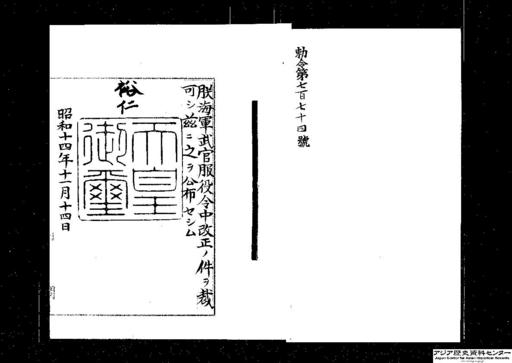 勅令第七百七十四號
朕海軍武官服役令中改正ノ件ヲ裁
可シ茲ニ之ヲ公布セシム
裕仁
天皇
御璽
昭和十四年十一月十四日
アジア歴史資料センター
Japan Center for Asian Historical Records